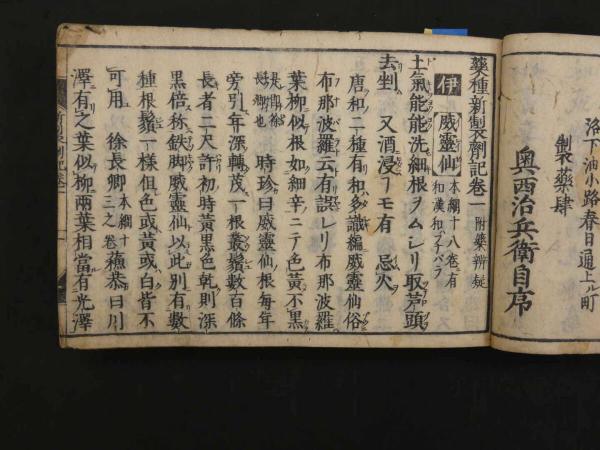 洛下油小路春日通上ル町
製薬肆
奥西治兵衛自序
藥種新製劑記卷一 附藥辨疑
伊 威靈仙 本綱十八卷有
和漢和フナバラ
土氣能能洗細根ヲムシリ取芦頭
去剉 又酒浸シモ有 忌火
唐和二種有和多識編威靈仙俗
布那波羅云有誤レリ布那波羅
葉柳似根如細辛ニテ色黃不黑
是即徐
長卿也 時珍曰威靈仙根毎年
旁引年深轉茂一根叢鬚數百條
長者二尺許初時黃黑色乾則深
黑倍称鉄脚威靈仙以此別有數
種根鬚一樣但色或黃或白皆不
可用 徐長卿 本綱十
三之卷 蘓恭曰川
澤有之葉似柳兩葉相當有光澤